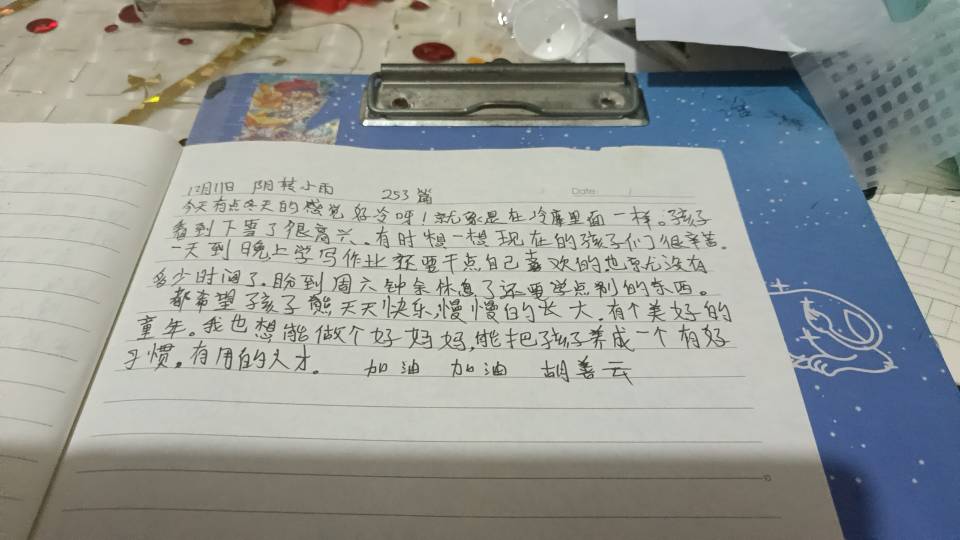 12月11日 阴转小雨 253篇
Date:
今天有点冬天的感觉好冷呀！就象是在冷库里面一样。孩子
看到下雪了很高兴。有时想一想现在的孩子们很辛苦。
一天到晚上学写作业还要干点自己喜欢的也就没有
多少时间了。盼到周六 休息了还要学点别的东西。
都希望孩子能天天快乐,慢慢的长大,有个美好的
童年。我也想能做个好妈妈,能把孩子养成一个有好
习惯。有用的人才。 加油 加油 胡善云